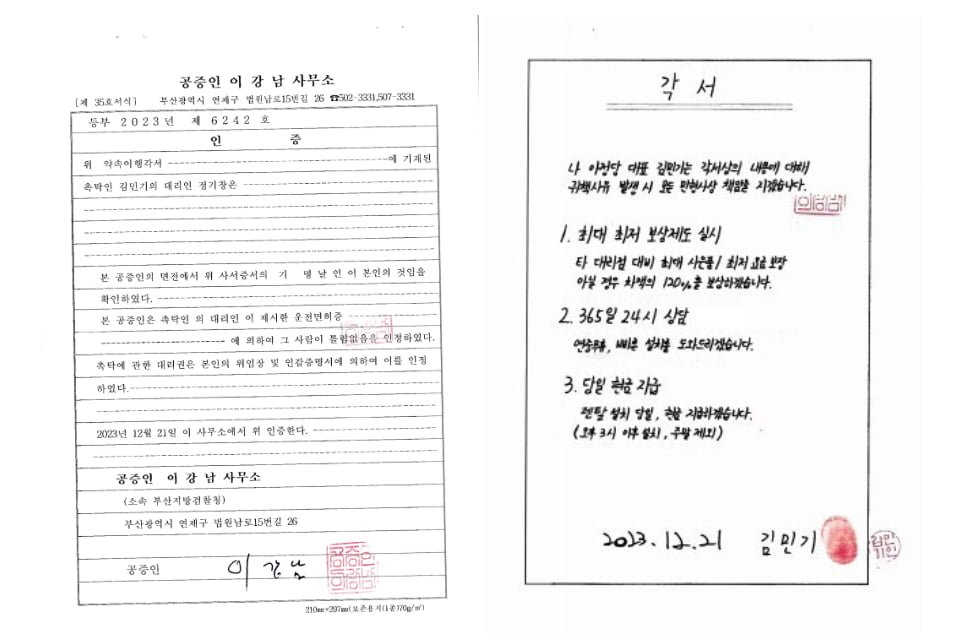 공증인 이 강 남 사무소
[제 35호서식] 부산광역시 연제구 법원남로15번길 26 ☎502-3331,507-3331
등부 2 0 2 3 년 제 6 2 4 2 호
인 증
위 약속이행각서 에 기재된
촉탁인 김민기의 대리인 정기장은
본 공증인의 면전에서 위 사서증서의 기 명 날 인 이 본인의 것임을
확인하였다.
본 공증인은 촉탁인 의 대리인 이 제시한 운전면허증
에 의하여 그 사람이 틀림없음을 인정하였다.
촉탁에 관한 대리권은 본인의 위임장 및 인감증명서에 의하여 이를 인정
하였다.
2023년 12월 21일 이 사무소에서 위 인증한다.
공증인 이 강 남 사무소
(소속 부산지방검찰청)
부산광역시 연제구 법원남로15번길 26
공증인 이 강 남
210㎜×297㎜(보존용지(1종)70g/㎡)
각 서
나 아정당 대표 김민기는 각서상의 내용에 대해
귀책사유 발생 시 모든 민형사상 책임을 지겠습니다.
1. 최대 최저 보상제도 실시
타 대리점 대비 최대 사은품/ 최저 요금 보장
아닐 경우 차액의 120%를 보상하겠습니다.
2. 365일 24시 상담
연중무휴, 빠른 설치를 도와드리겠습니다.
3. 당일 현금 지급
렌탈 설치 당일, 현금 지급하겠습니다.
(오후 3시 이후 설치, 주말 제외)
2023.12.21 김민기